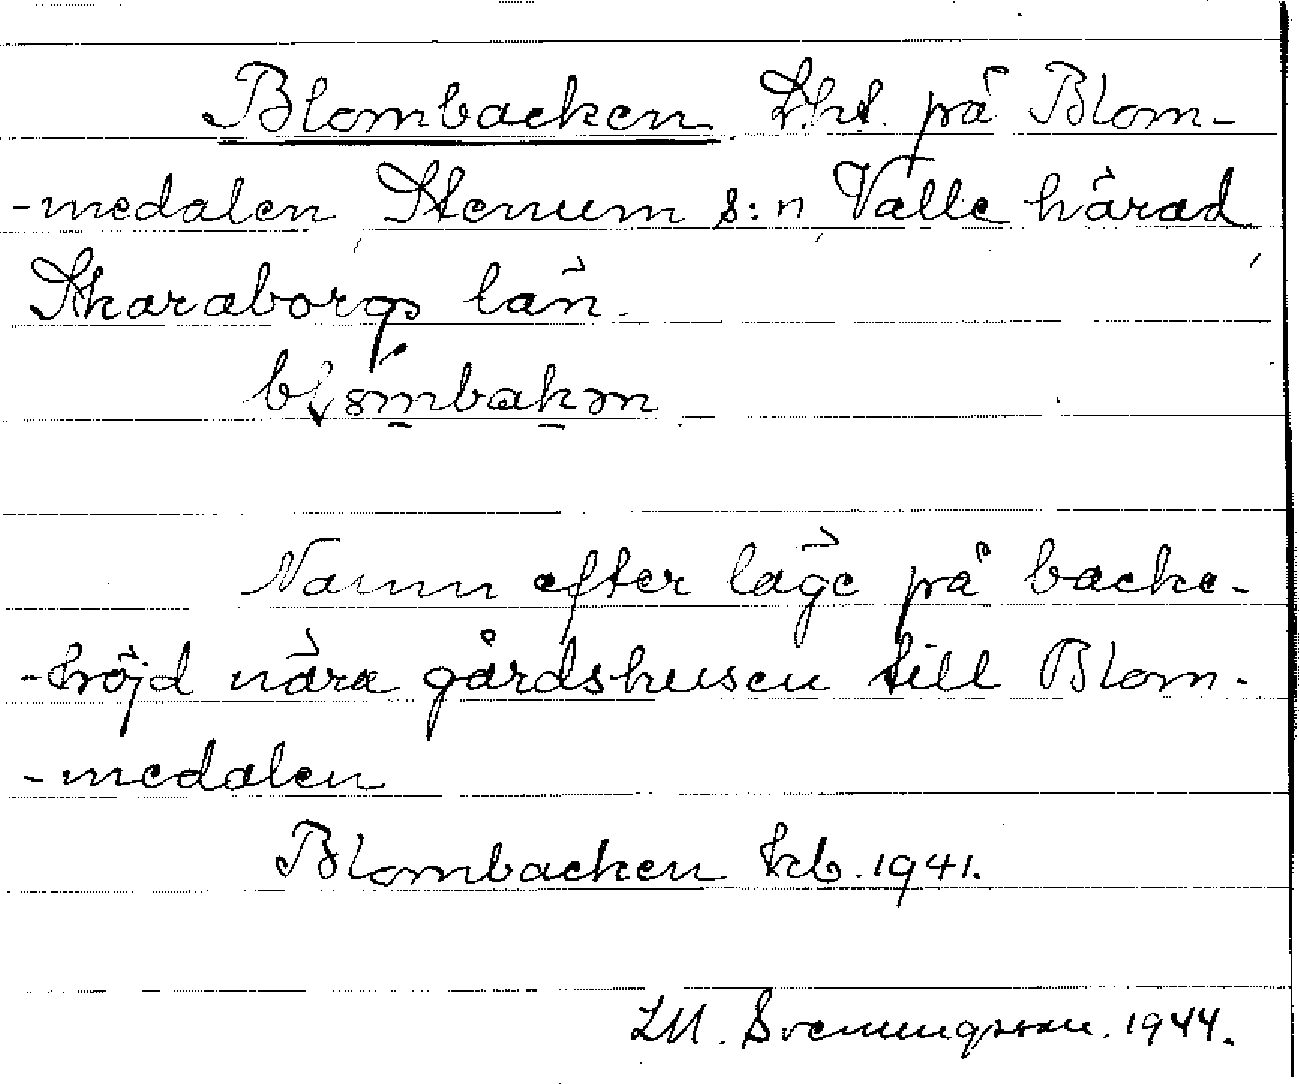 Blombacken. Lht. på Blom-
-medalen, Stenum s:n, Valle härad,
Skaraborgs län.
Namn efter läge på backe-
-höjd nära gårdshusen till Blom-
-medalen
Blombacken kb. 1941.
LM. Svenungsson. 1944.